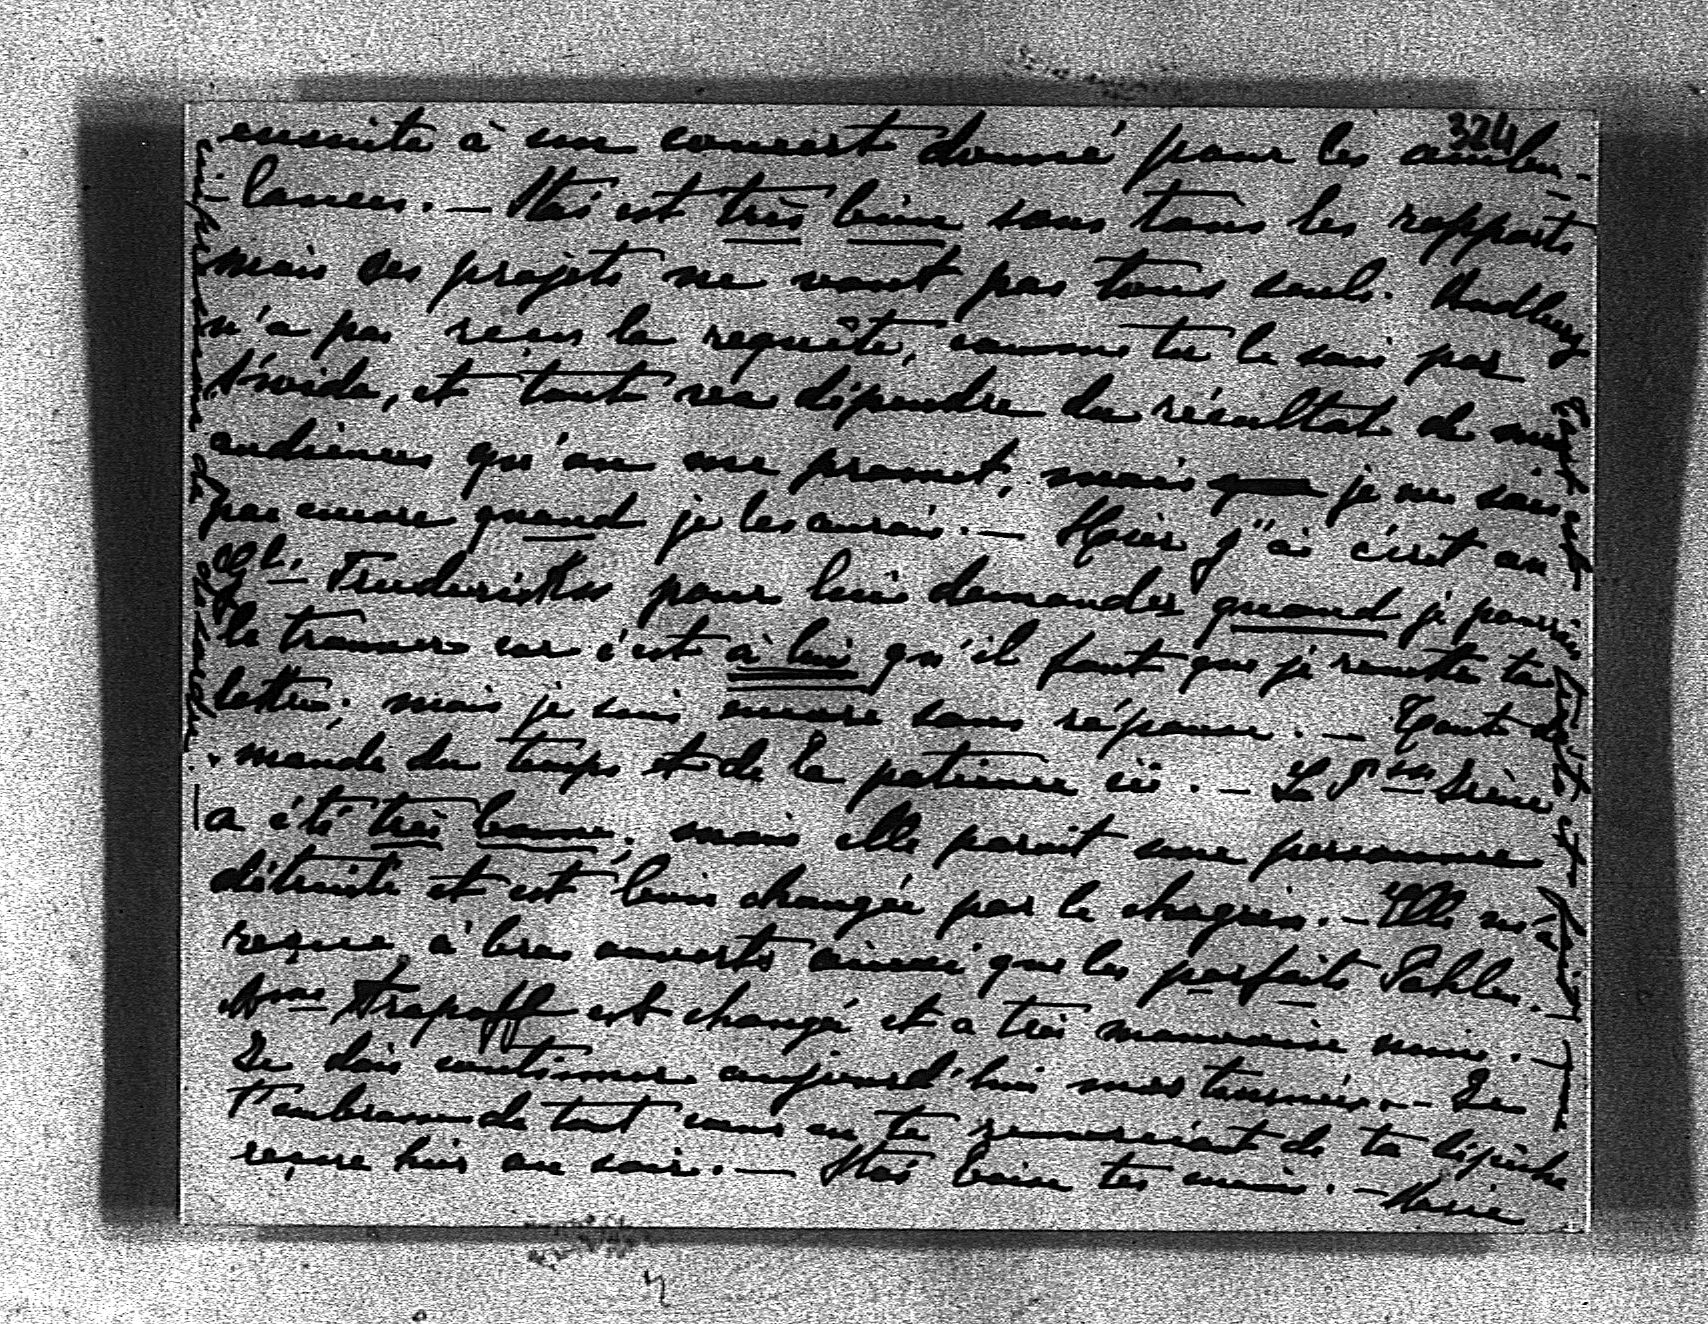 324
ensuite à un concert donné pour les ambu-
-lances. — Stas est très bien sous tous les rapports
mais ses projets ne vont pas tous seuls. Budberg
n'a pas reçu la requête, comme tu le sais par
et tout va dépendre du résultat de mes
audiences qu'on me promet, mais je ne sais
pas encore quand je les aurai. — Hier j'ai écrit au
Gl. Freedericksz pour lui demander quand je pourrai
le trouver car c'est à lui qu'il faut que je remette ta
lettre; mais je suis encore sans réponse. — Tout de-
mande du temps et de la patience ici. — La Psse Irène
a été très bonne, mais elle parait une personne
détruite et est bien changée par le chagrin. — Elle m'a
reçue à bras ouverts ainsi que les parfaits Pahlen.
Mme Trapoff est changée et a très mauvaise mine. —
Je dois continuer aujourd'hui mes tournées. — Je
t'embrasse de tout cœur en te remerciant de ta dépêche
reçue hier au soir. — Stas baise tes mains. — Marie